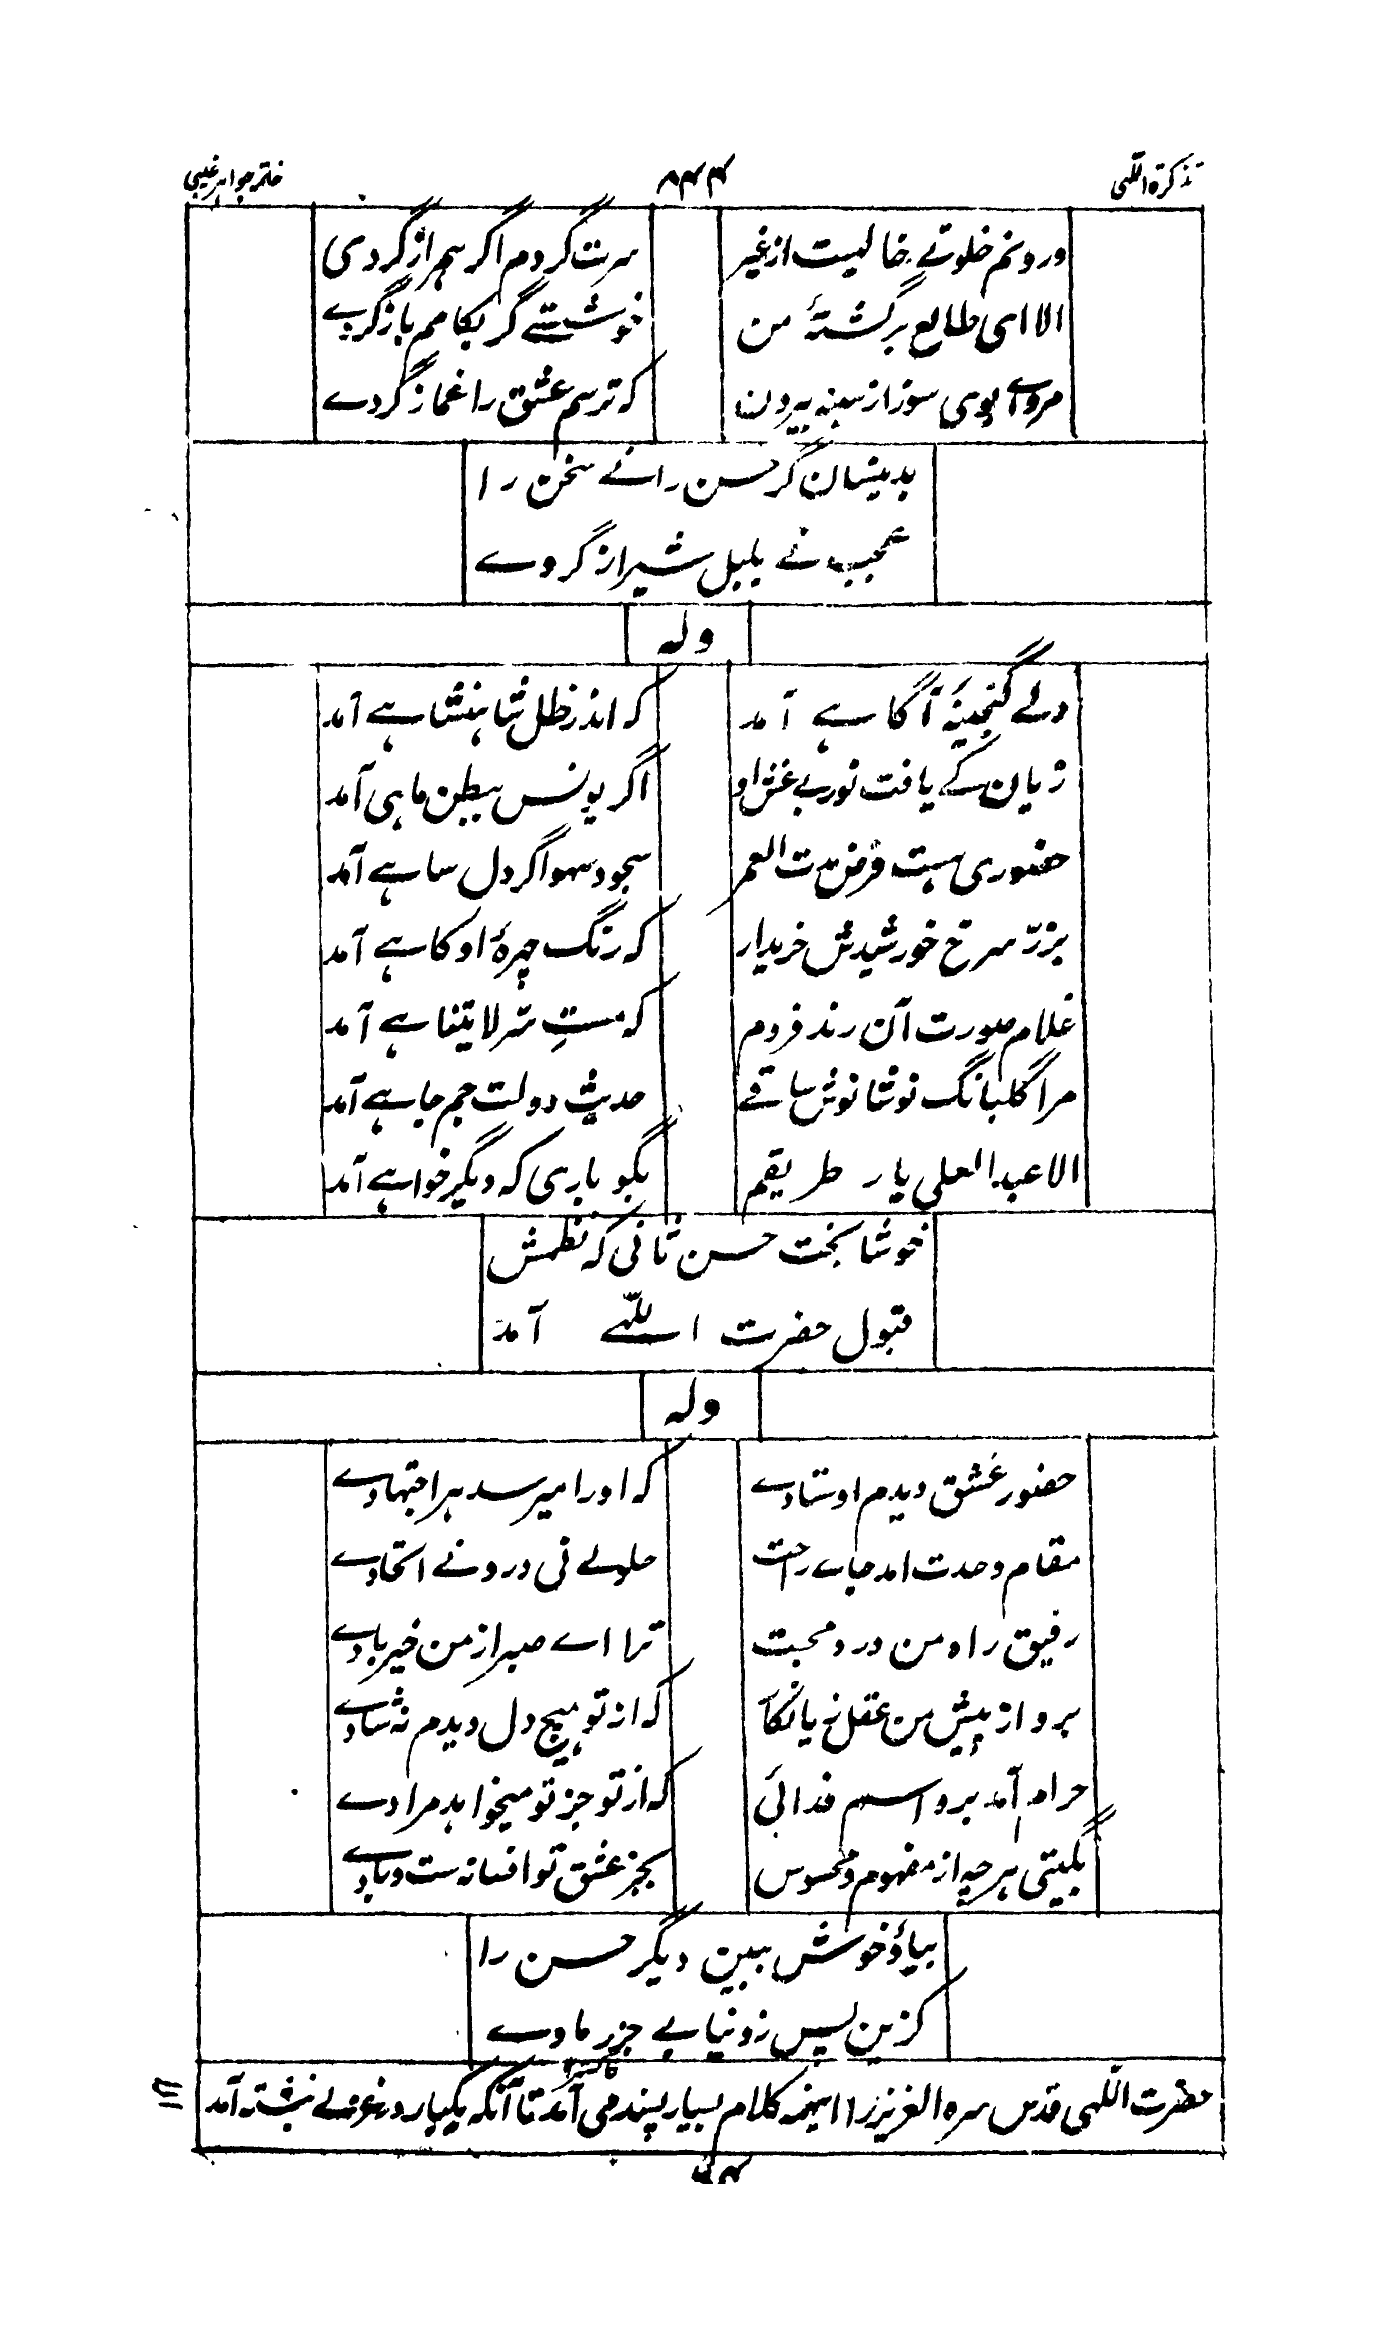 تذکرۃ اللّٰہی ۵۴۴ خاتمہ جواہر غیبی
درونم خلوتے خالیست از غیر سرت گردم اگر ہمراز گردی
الا ای طالع برگشتۂ من خوشستے گر بکامم باز گردے
مرو اے بوی سوز از سینہ بیرون کہ ترسم عشق را غماز گردے
بدینسان گر حسن رانے سخن را
عجب نے بلبل شیراز گردے
ولہ
دلے گنجینۂ آگاہے آمد کہ اندر ظل شاہنشاہے آمد
زیان کے یافت نور بے غش او اگر یونس ببطن ماہی آمد
حضوری ہست فرض مدت العمر سجود سہو اگر دل ساہے آمد
بزرّ سرخ خورشیدش خریدار کہ رنگ چہرۂ او کاہے آمد
غلام صورت آن رند فردم کہ مستِ سّر لا یتناہے آمد
مرا گلبانگ نوشا نوش ساقے حدیث دولت جم جاہے آمد
الا عبد العلی یار طریقم بگو باری کہ دیگر خواہے آمد
خوشا بخت حسن ثانی کہ نظمش
قبول حضرت اللّٰہے آمد
ولہ
حضور عشق دیدم اوستادے کہ او را میرسد ہر اجتہادے
مقام وحدت امد جاے راحت حلولے نی درو نے اتحادے
رفیق راہ من درد محبت ترا اے صبر از من خیر بادے
برو از پیش من عقل کہ از تو ہیچ دل دیدم نہ شادے
حرام آمد برو اسم فدائی کہ از تو جز تو میخواہد مرادے
بگیتی ہر چہ از مفہوم و محسوس بجز عشق تو افسانہ ست و بادے
بیا و خوش ببین دیگر حسن را
کزین پس ز دنیا بے جزر مادے
حضرت اللّٰہی قدس سرہ العزیز را اینہمہ کلام بسیار پسند می آمد تا آنکہ یکبار در غزلے نبشتہ آمد